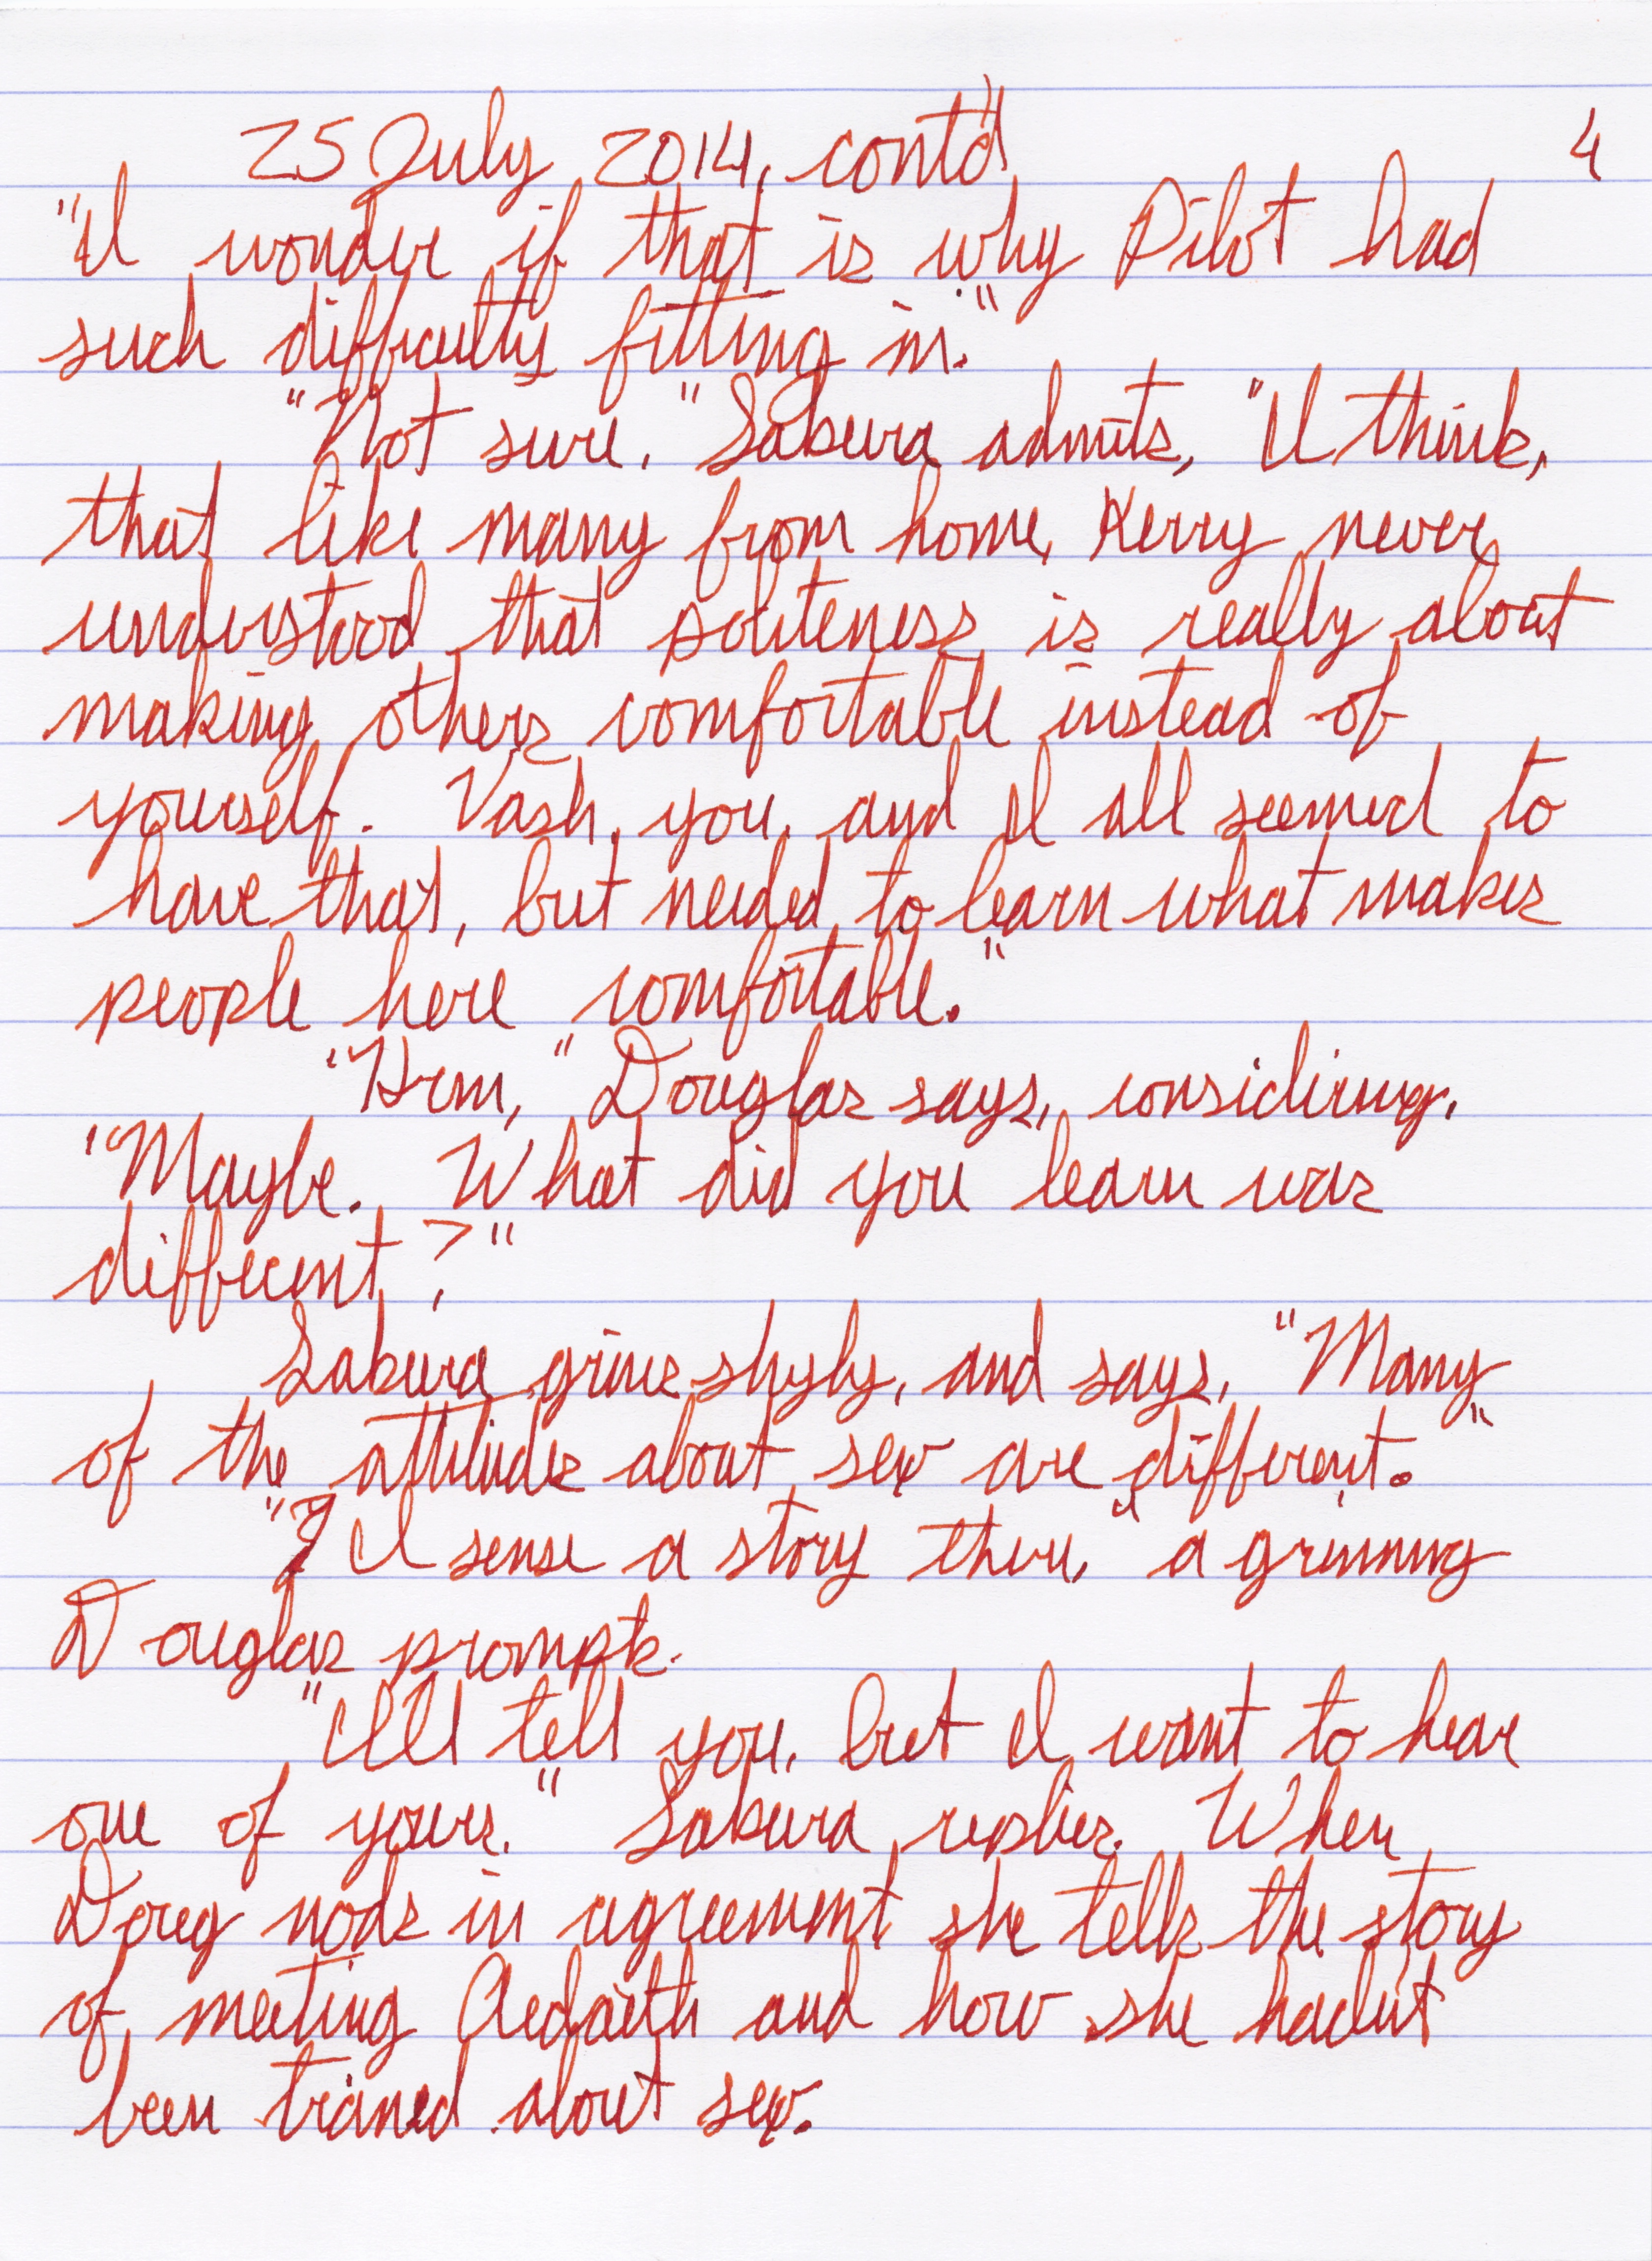 25 July 2014, cont'd 4
"I wonder if that is why Pilot had
such difficulty fitting in."
"Not sure," Sakura admits, "I think,
that like many from home, Kerry never
understood that politeness is really about
making others comfortable instead of
yourself. Vash, you, and I all seemed to
have that, but needed to learn what makes
people here comfortable."
"Hrm," Douglas says, considering.
"Maybe. What did you learn was
different?"
Sakura grins shyly, and says, "Many
of the attitudes about sex are different."
"I sense a story there," a grinning
Douglas prompts.
"I'll tell you, but I want to hear
one of yours." Sakura replies. When
Doug nods in agreement she tells the story
of meeting Aedaeth and how she hadn't
been trained about sex.